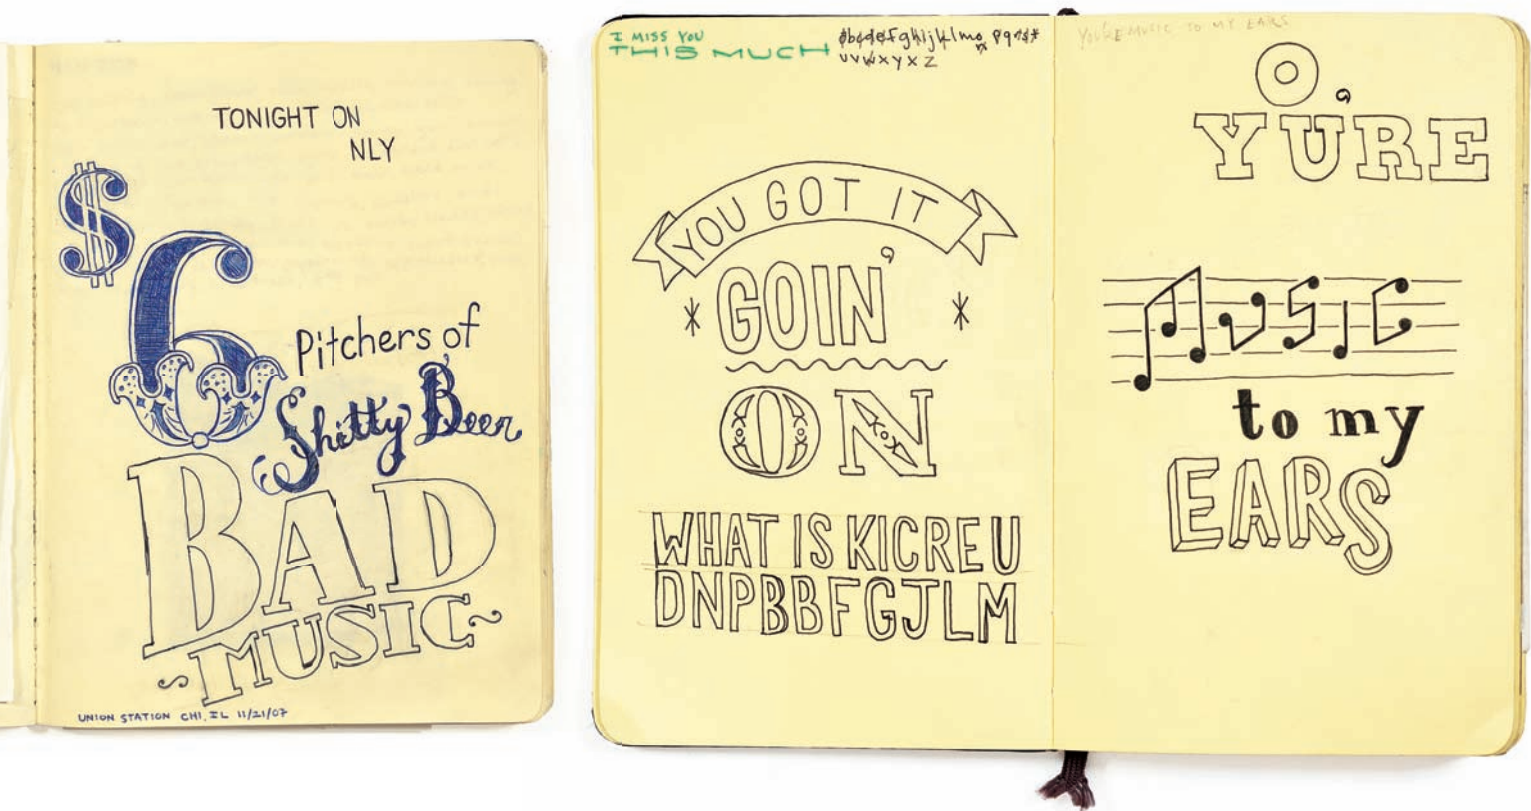 TONIGHT ON
NLY
$6
Pitchers of
Shitty Beer
BAD
MUSIC
UNION STATION CHI, IL 11/21/07
I MISS YOU
THIS MUCH
YOU GOT IT
GOIN'
ON
WHAT IS KICREU
DNPBBFGJLM
YOU'RE MUSIC TO MY EARS
O,
YURE
MUSIC
to my
EARS